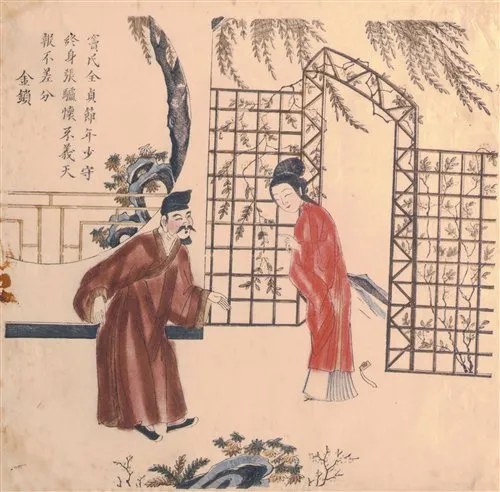 竇氏全貞節年少守
終身張驢懷不義天
報不差分
金鎖